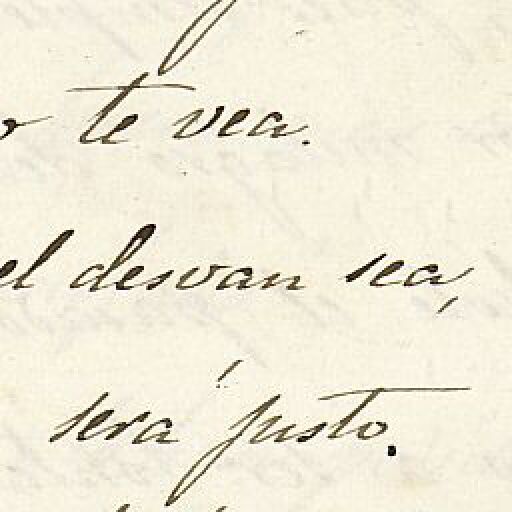 te vea.
el desvan sea,
será justo.